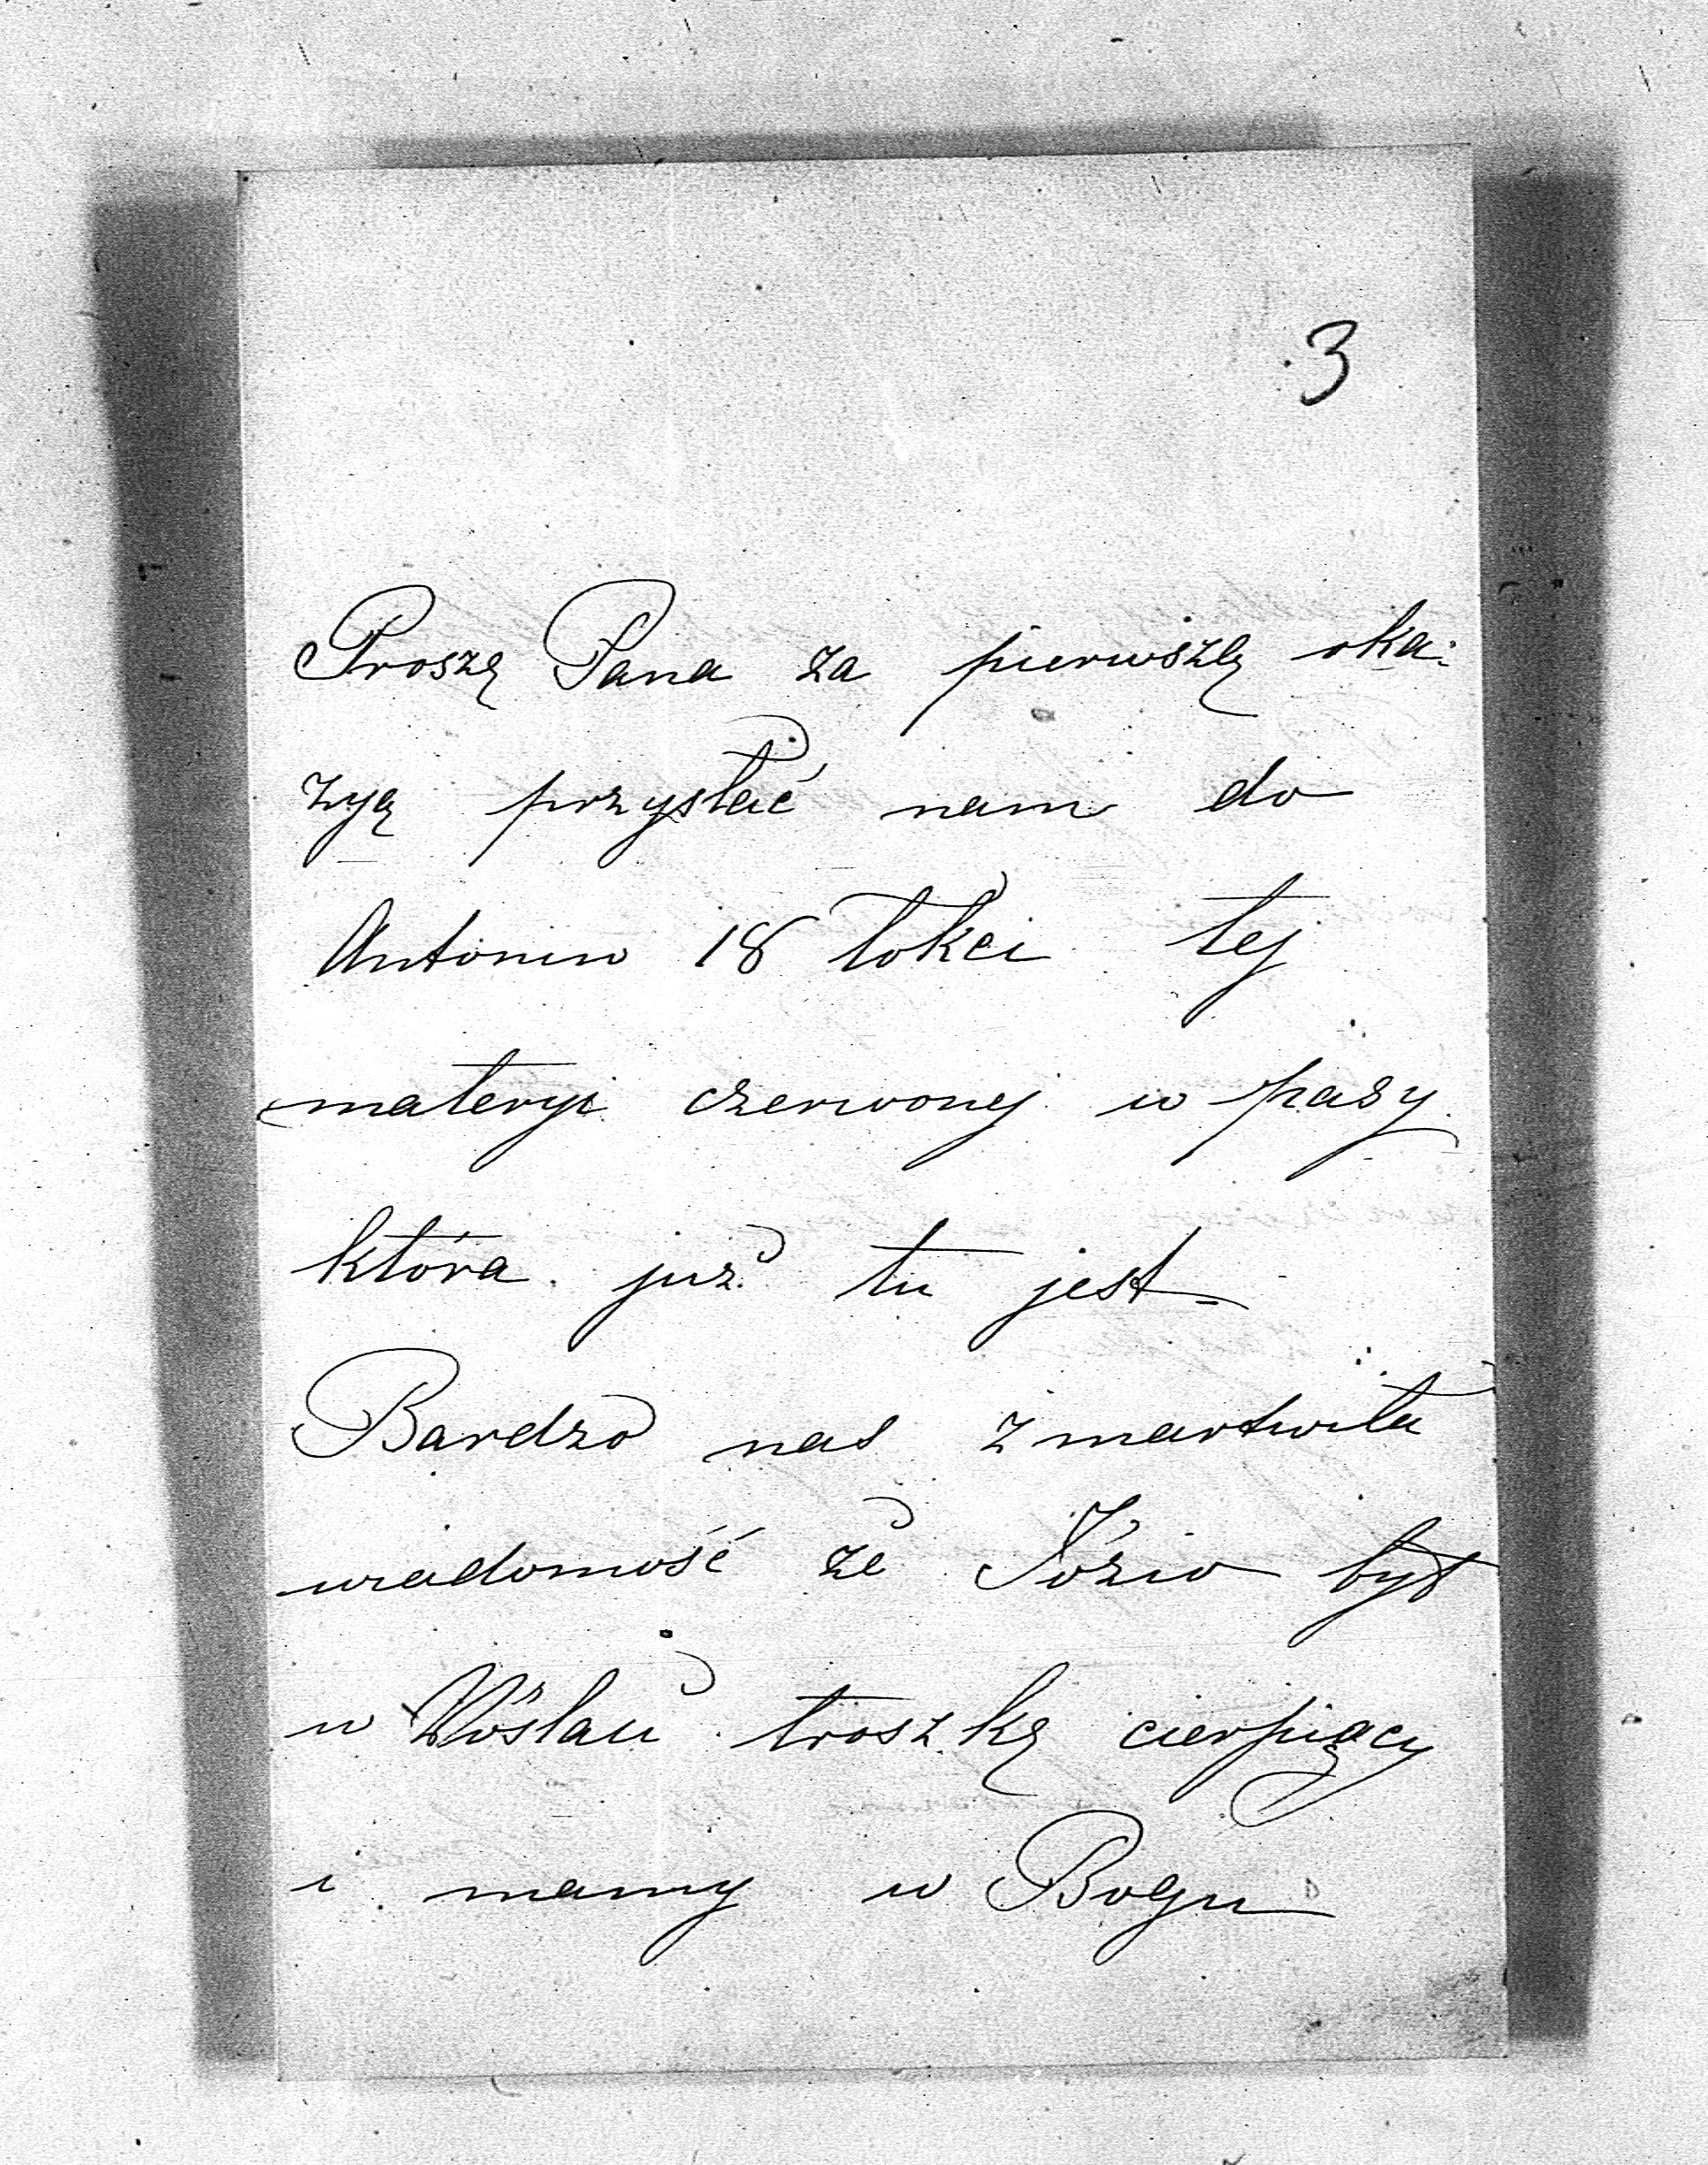 3
Proszę Pana za pierwszą oka:
zyą przysłać nam do
Antonin 18 łokci tej
materyi czerwonej w pasy
która już tu jest –
Bardzo nas zmartwiła
wiadomość że Józio był
w Vöslau troszkę cierpiący
i mamy w Bogu